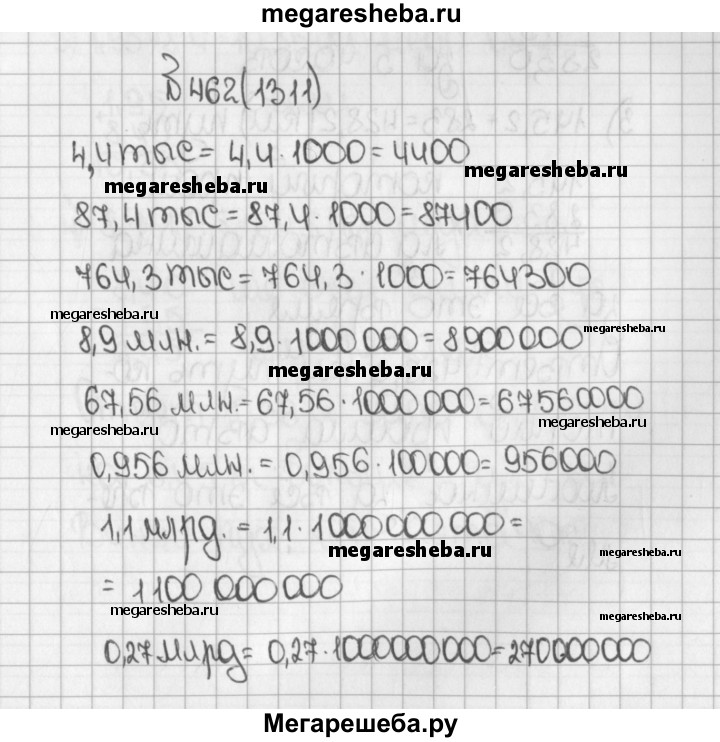 megaresheba.ru
№ 462(1311)
4,4 тыс = 4,4 · 1000 = 4400
megaresheba.ru
megaresheba.ru
87,4 тыс = 87,4 · 1000 = 87400
764,3 тыс = 764,3 · 1000 = 764300
megaresheba.ru
8,9 млн. = 8,9 · 1000 000 = 8900 000
megaresheba.ru
megaresheba.ru
67,56 млн. = 67,56 · 1000 000 = 67560000
megaresheba.ru
megaresheba.ru
0,956 млн. = 0,956 · 100000 = 956000
1,1 млрд. = 1,1 · 1000 000 000 =
megaresheba.ru
megaresheba.ru
= 1100 000 000
megaresheba.ru
megaresheba.ru
0,27 млрд = 0,27 · 1000000000 = 270000000
megaresheba.ru
megaresheba.ru
Мегарешеба.ру